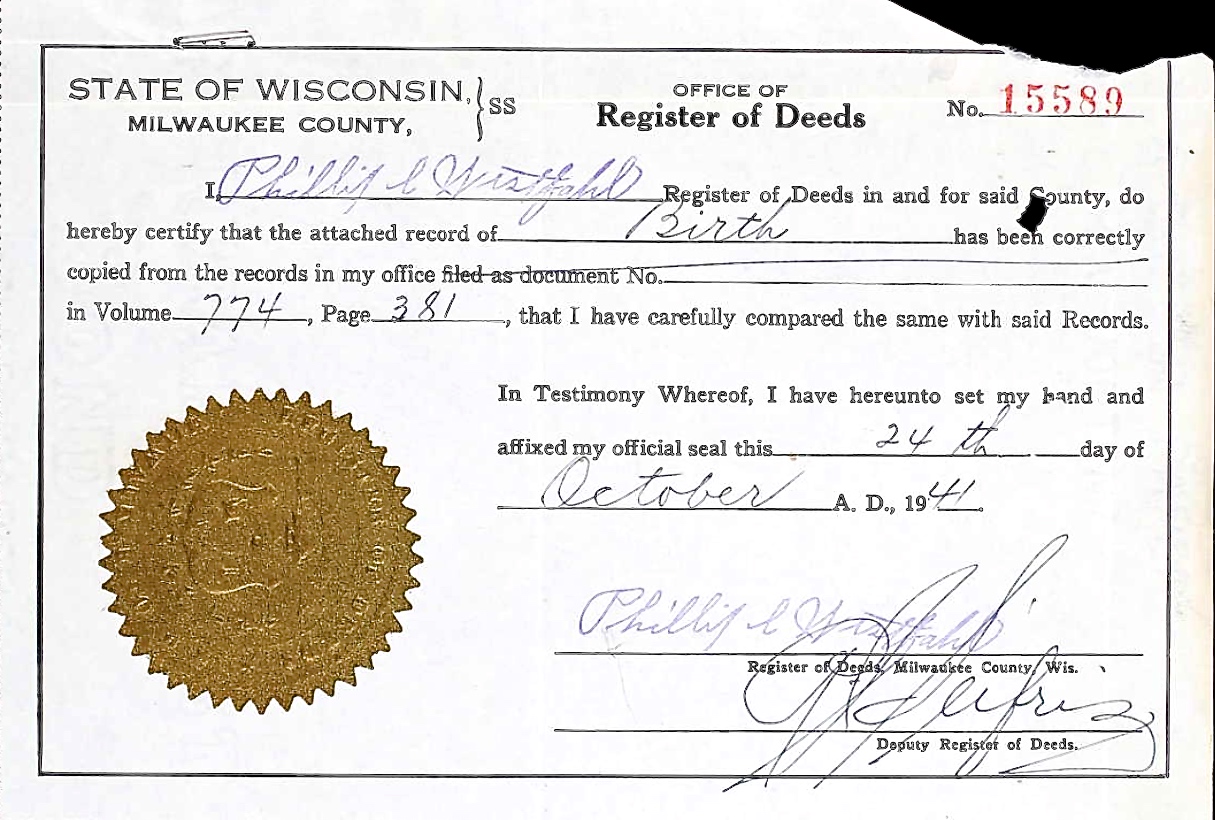 STATE OF WISCONSIN, } SS
MILWAUKEE COUNTY,
OFFICE OF
Register of Deeds
No. 15589
I, Phillip C Westfahl Register of Deeds in and for said County, do
hereby certify that the attached record of Birth has been correctly
copied from the records in my office filed as document No.
in Volume 774, Page 381, that I have carefully compared the same with said Records.
In Testimony Whereof, I have hereunto set my hand and
affixed my official seal this 24 th day of
October A. D., 1941.
Phillip C Westfahl
Register of Deeds, Milwaukee County, Wis.
Deputy Register of Deeds.